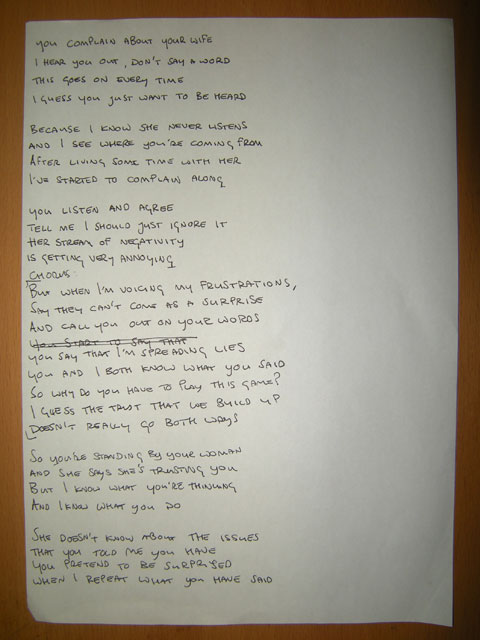 YOU COMPLAIN ABOUT YOUR WIFE
I HEAR YOU OUT, DON'T SAY A WORD
THIS GOES ON EVERY TIME
I GUESS YOU JUST WANT TO BE HEARD
BECAUSE I KNOW SHE NEVER LISTENS
AND I SEE WHERE YOU'RE COMING FROM
AFTER LIVING SOME TIME WITH HER
I'VE STARTED TO COMPLAIN ALONG
YOU LISTEN AND AGREE
TELL ME I SHOULD JUST IGNORE IT
HER STREAM OF NEGATIVITY
IS GETTING VERY ANNOYING
CHORUS:
BUT WHEN I'M VOICING MY FRUSTRATIONS,
SAY THEY CAN'T COME AS A SURPRISE
AND CALL YOU OUT ON YOUR WORDS
YOU START TO SAY THAT
YOU SAY THAT I'M SPREADING LIES
YOU AND I BOTH KNOW WHAT YOU SAID
SO WHY DO YOU HAVE TO PLAY THIS GAME?
I GUESS THE TRUST THAT WE BUILD UP
DOESN'T REALLY GO BOTH WAYS
SO YOU'RE STANDING BY YOUR WOMAN
AND SHE SAYS SHE'S TRUSTING YOU
BUT I KNOW WHAT YOU'RE THINKING
AND I KNOW WHAT YOU DO
SHE DOESN'T KNOW ABOUT THE ISSUES
THAT YOU TOLD ME YOU HAVE
YOU PRETEND TO BE SURPRISED
WHEN I REPEAT WHAT YOU HAVE SAID